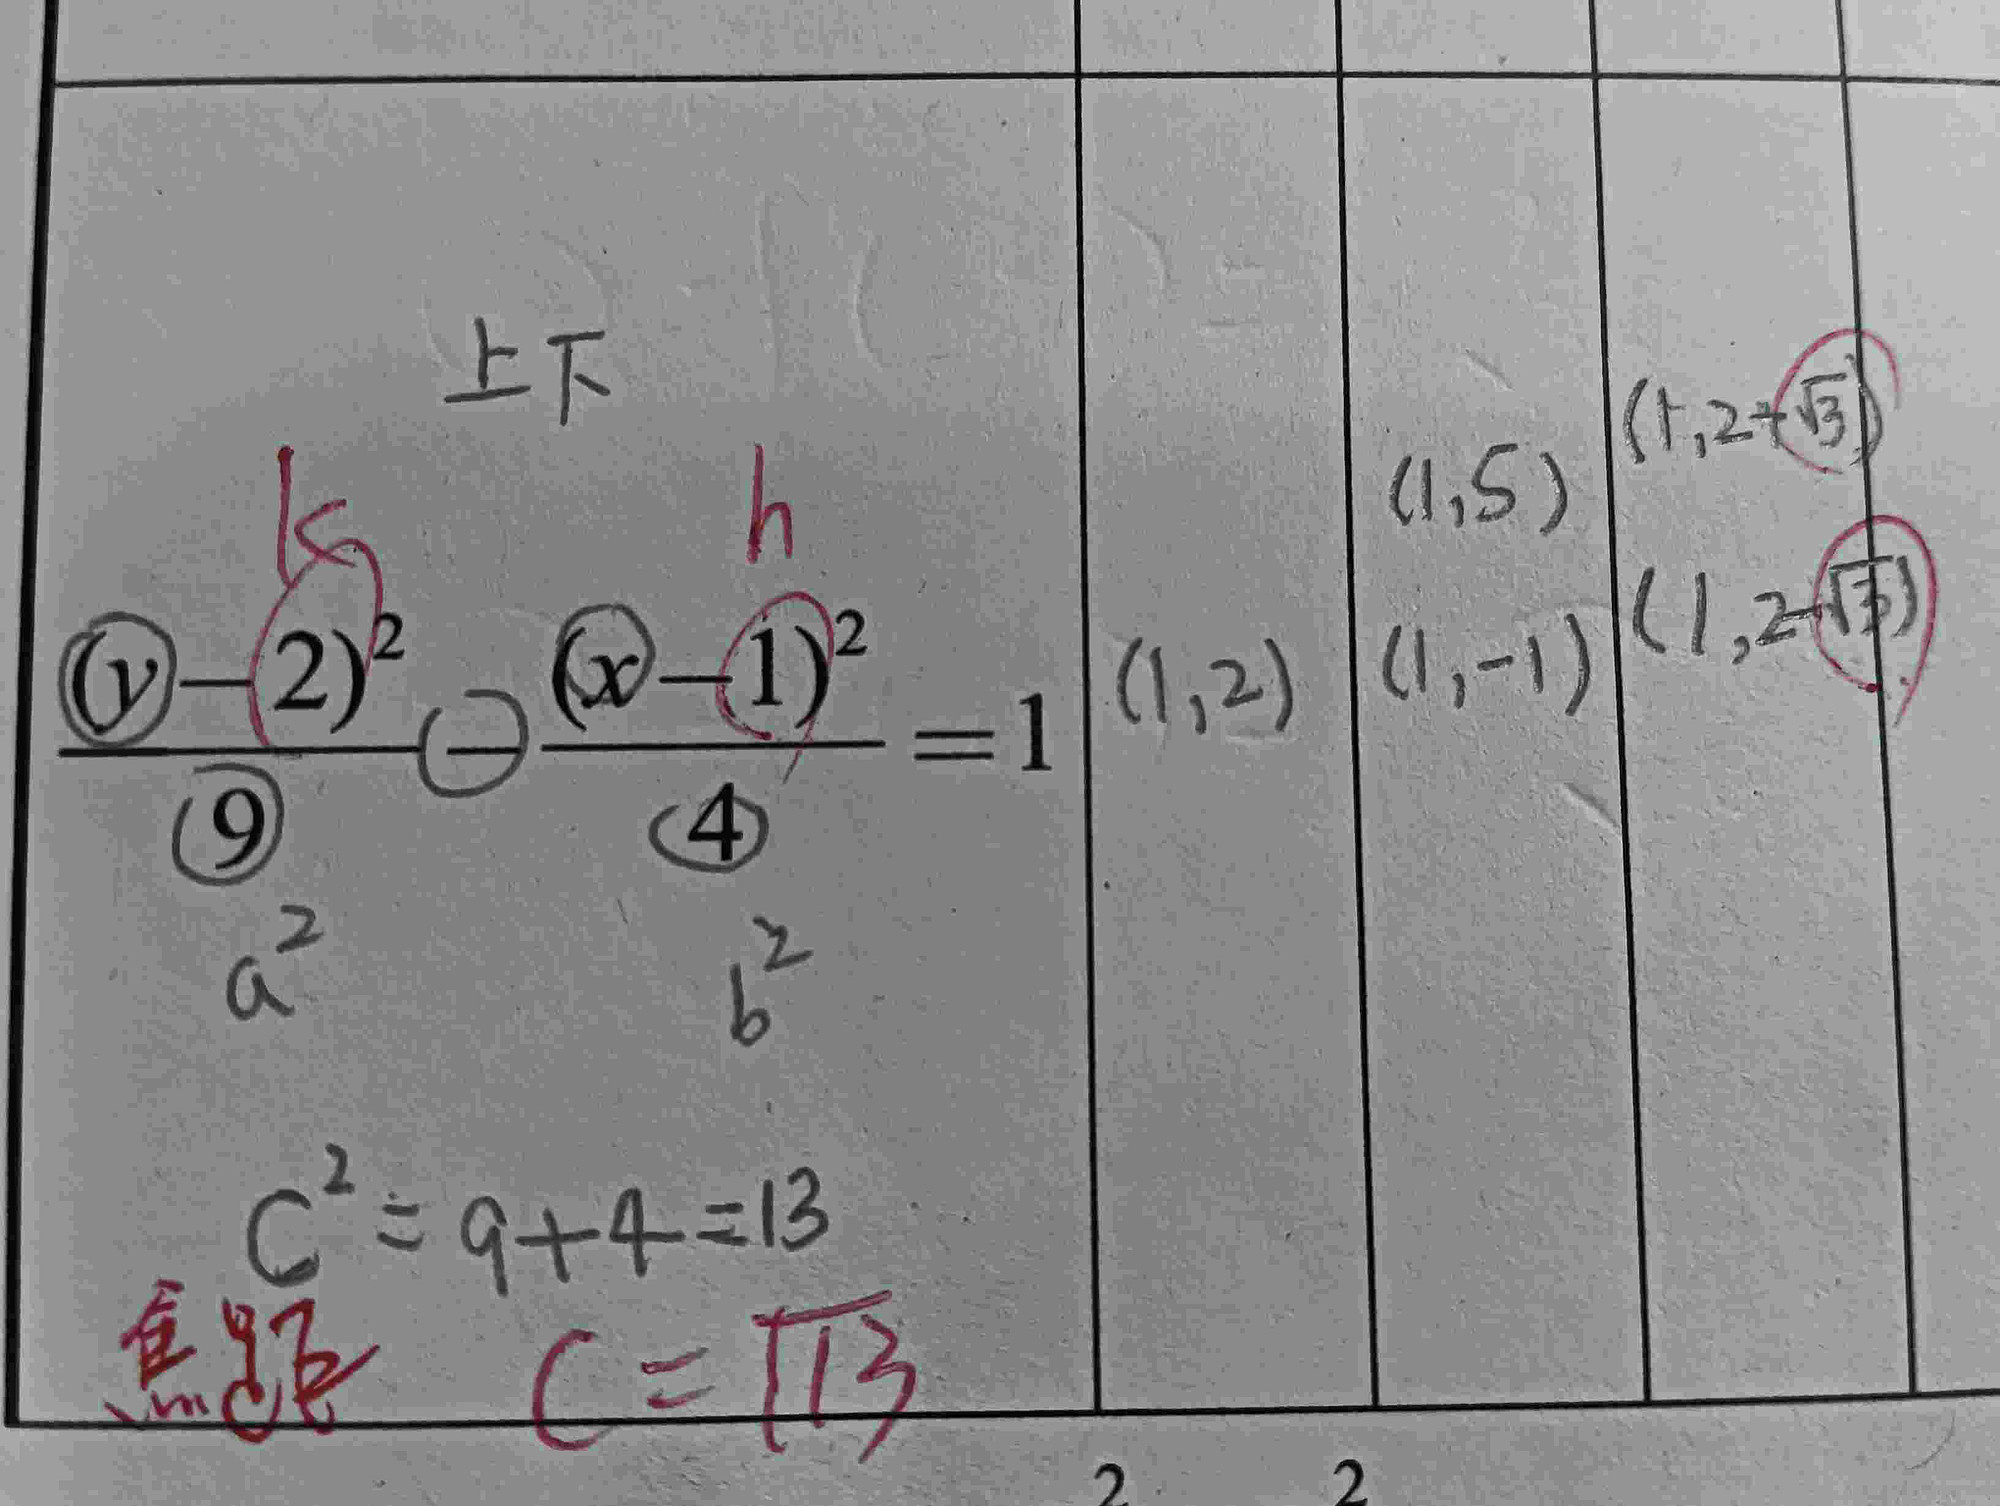 上下
k h
(y-2)²/9 - (x-1)²/4 = 1
a² b²
c² = 9+4 = 13
焦距 c = √13
(1,2)
(1,5)
(1,-1)
(1,2+√3)
(1,2-√3)
2 2